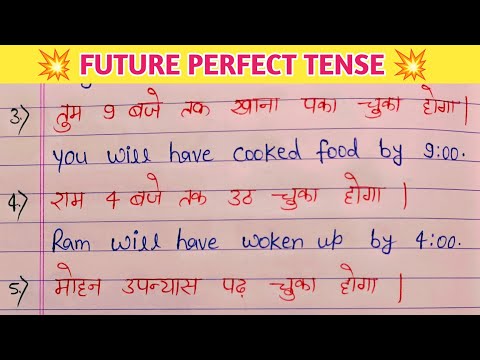 💥 FUTURE PERFECT TENSE 💥
3.) तुम 9 बजे तक खाना पका चुका होगा |
you will have cooked food by 9:00.
4.) राम 4 बजे तक उठ चुका होगा |
Ram will have woken up by 4:00.
5.) मोहन उपन्यास पढ़ चुका होगा |